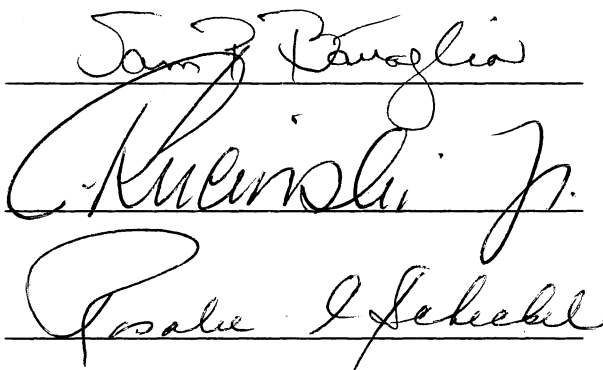 Sam R Bavaglia
C. Rucinski Jr.
Rosalie J Scheckel